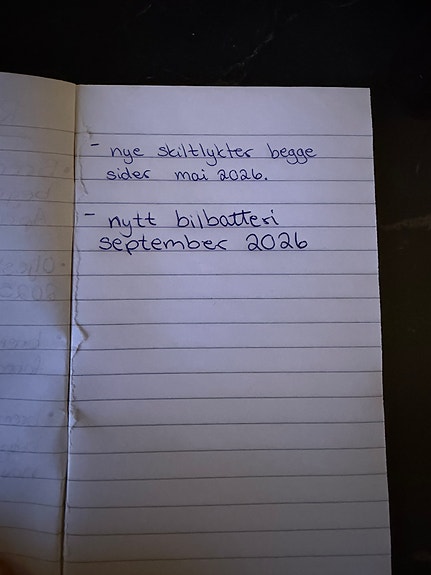 - nye skiltlykter begge
sider mai 2026.
- nytt bilbatteri
september 2026